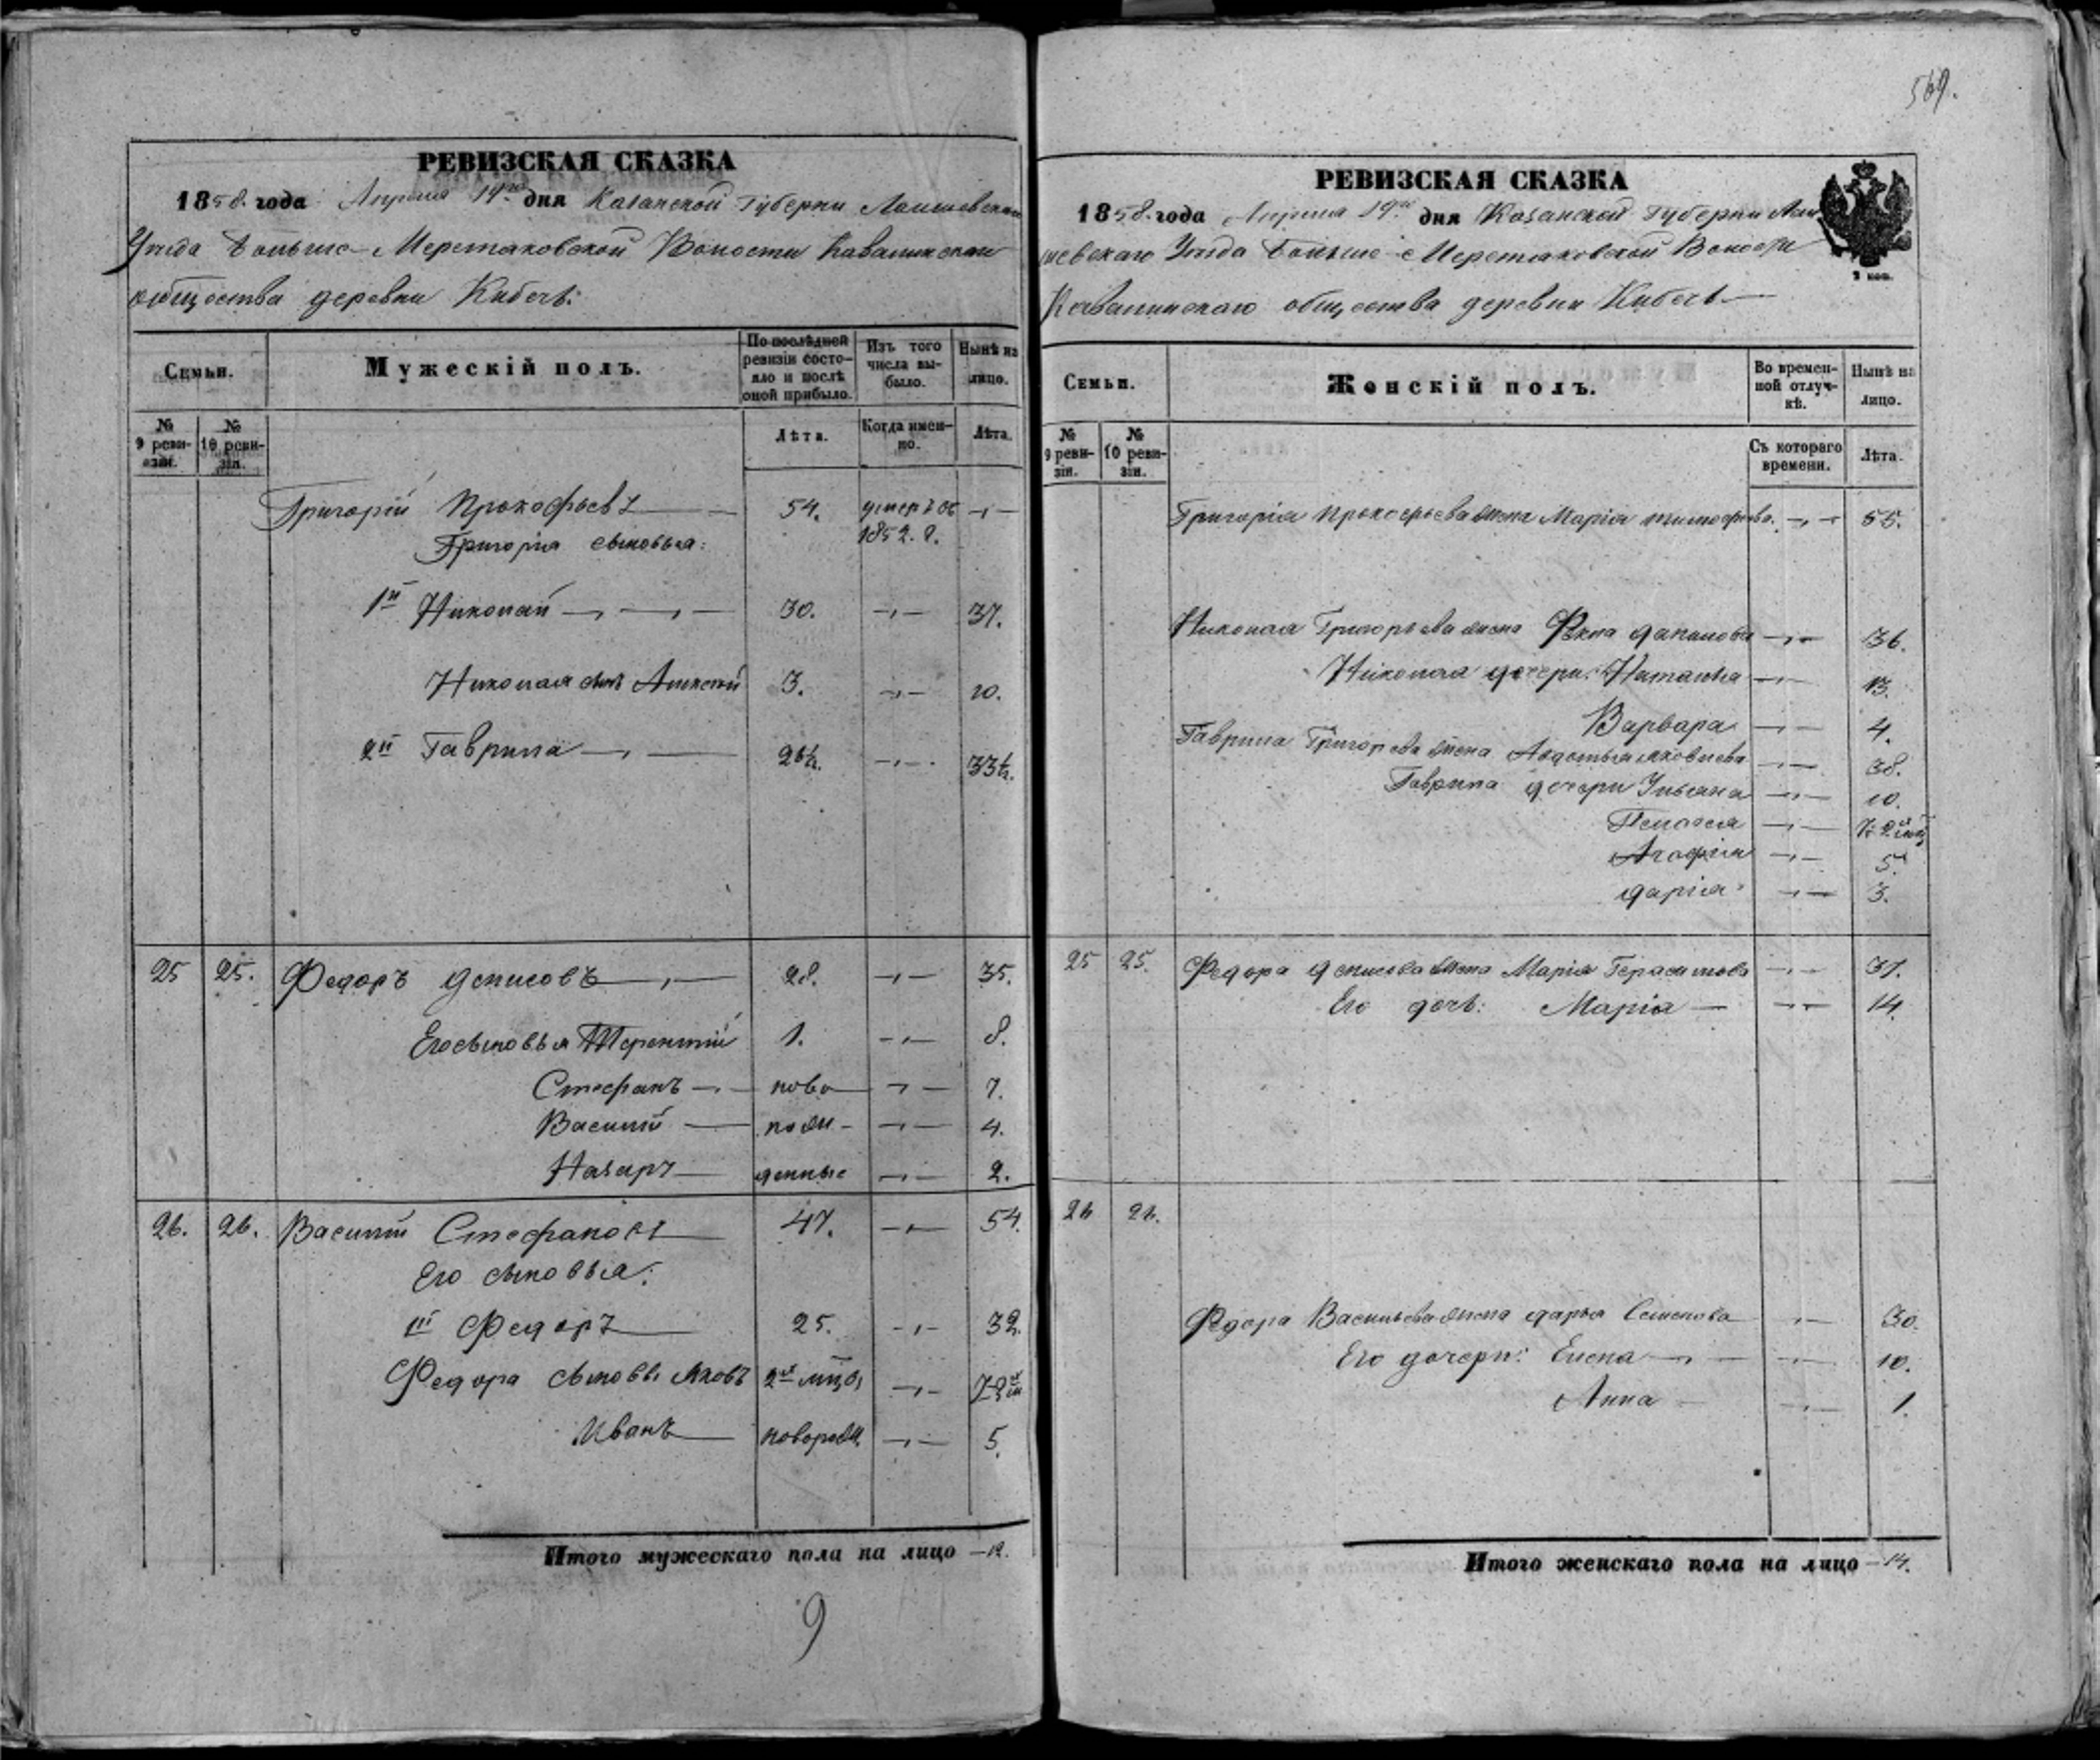 569.
РЕВИЗСКАЯ СКАЗКА
1858. года Апреля 19го дня Казанской Губернии Лаишевскаго
Уезда Больше-Меретяковской Волости Кавалинскаго
общества деревни Кибечь:
Семьи.
Мужескій полъ.
По послѣдней ревизіи состояло и послѣ оной прибыло.
Изъ того числа выбыло.
Нынѣ на лицо.
№ 9 ревизіи.
№ 10 ревизіи.
Лѣта.
Когда именно.
Лѣта.
Григорій Прокофьевъ 54. 1852. г.
Григорія сыновья:
1й Николай 30. 37.
Николая сынъ Алексѣй 3. 10.
2й Гаврила 26½. 33½.
25 25. Федоръ Денисовъ 28. 35.
Его сыновья Терентій 1. 8.
Стефанъ ново 7.
Василій рож- 4.
Назаръ денные 2.
26. 26. Василій Стефановъ 47. 54.
Его сыновья:
1й Федоръ 25. 32.
Федора сыновья Яковъ 2хъ мцъ
Иванъ новорож. 5.
Итого мужескаго пола на лицо 12.
9
РЕВИЗСКАЯ СКАЗКА
1858. года Апреля 19го дня Казанской Губернии Лаи
шевскаго Уезда Больше-Меретяковской Волости
Кавалинскаго общества деревни Кибечь
Семьи.
Женскій полъ.
Во временной отлучкѣ.
Нынѣ на лицо.
№ 9 ревизіи.
№ 10 ревизіи.
Съ котораго времени.
Лѣта.
Григорія Прокофьева жена Марія Тимофѣева. 55.
Николая Григорьева жена Фекла 36.
Николая дочери: Наталья 13.
Варвара 4.
Гаврила Григорьева жена Авдотья Яковлева 38.
Гаврила дочери Ульяна 10.
Пелагея
Агафія 5.
Дарія 3.
25 25. Федора Денисова жена Марія Герасимова 37.
Его дочь: Марія 14.
26 26.
Федора Васильева жена Дарья Семенова 30.
Его дочери: Елена 10.
Анна 1.
Итого женскаго пола на лицо 14.